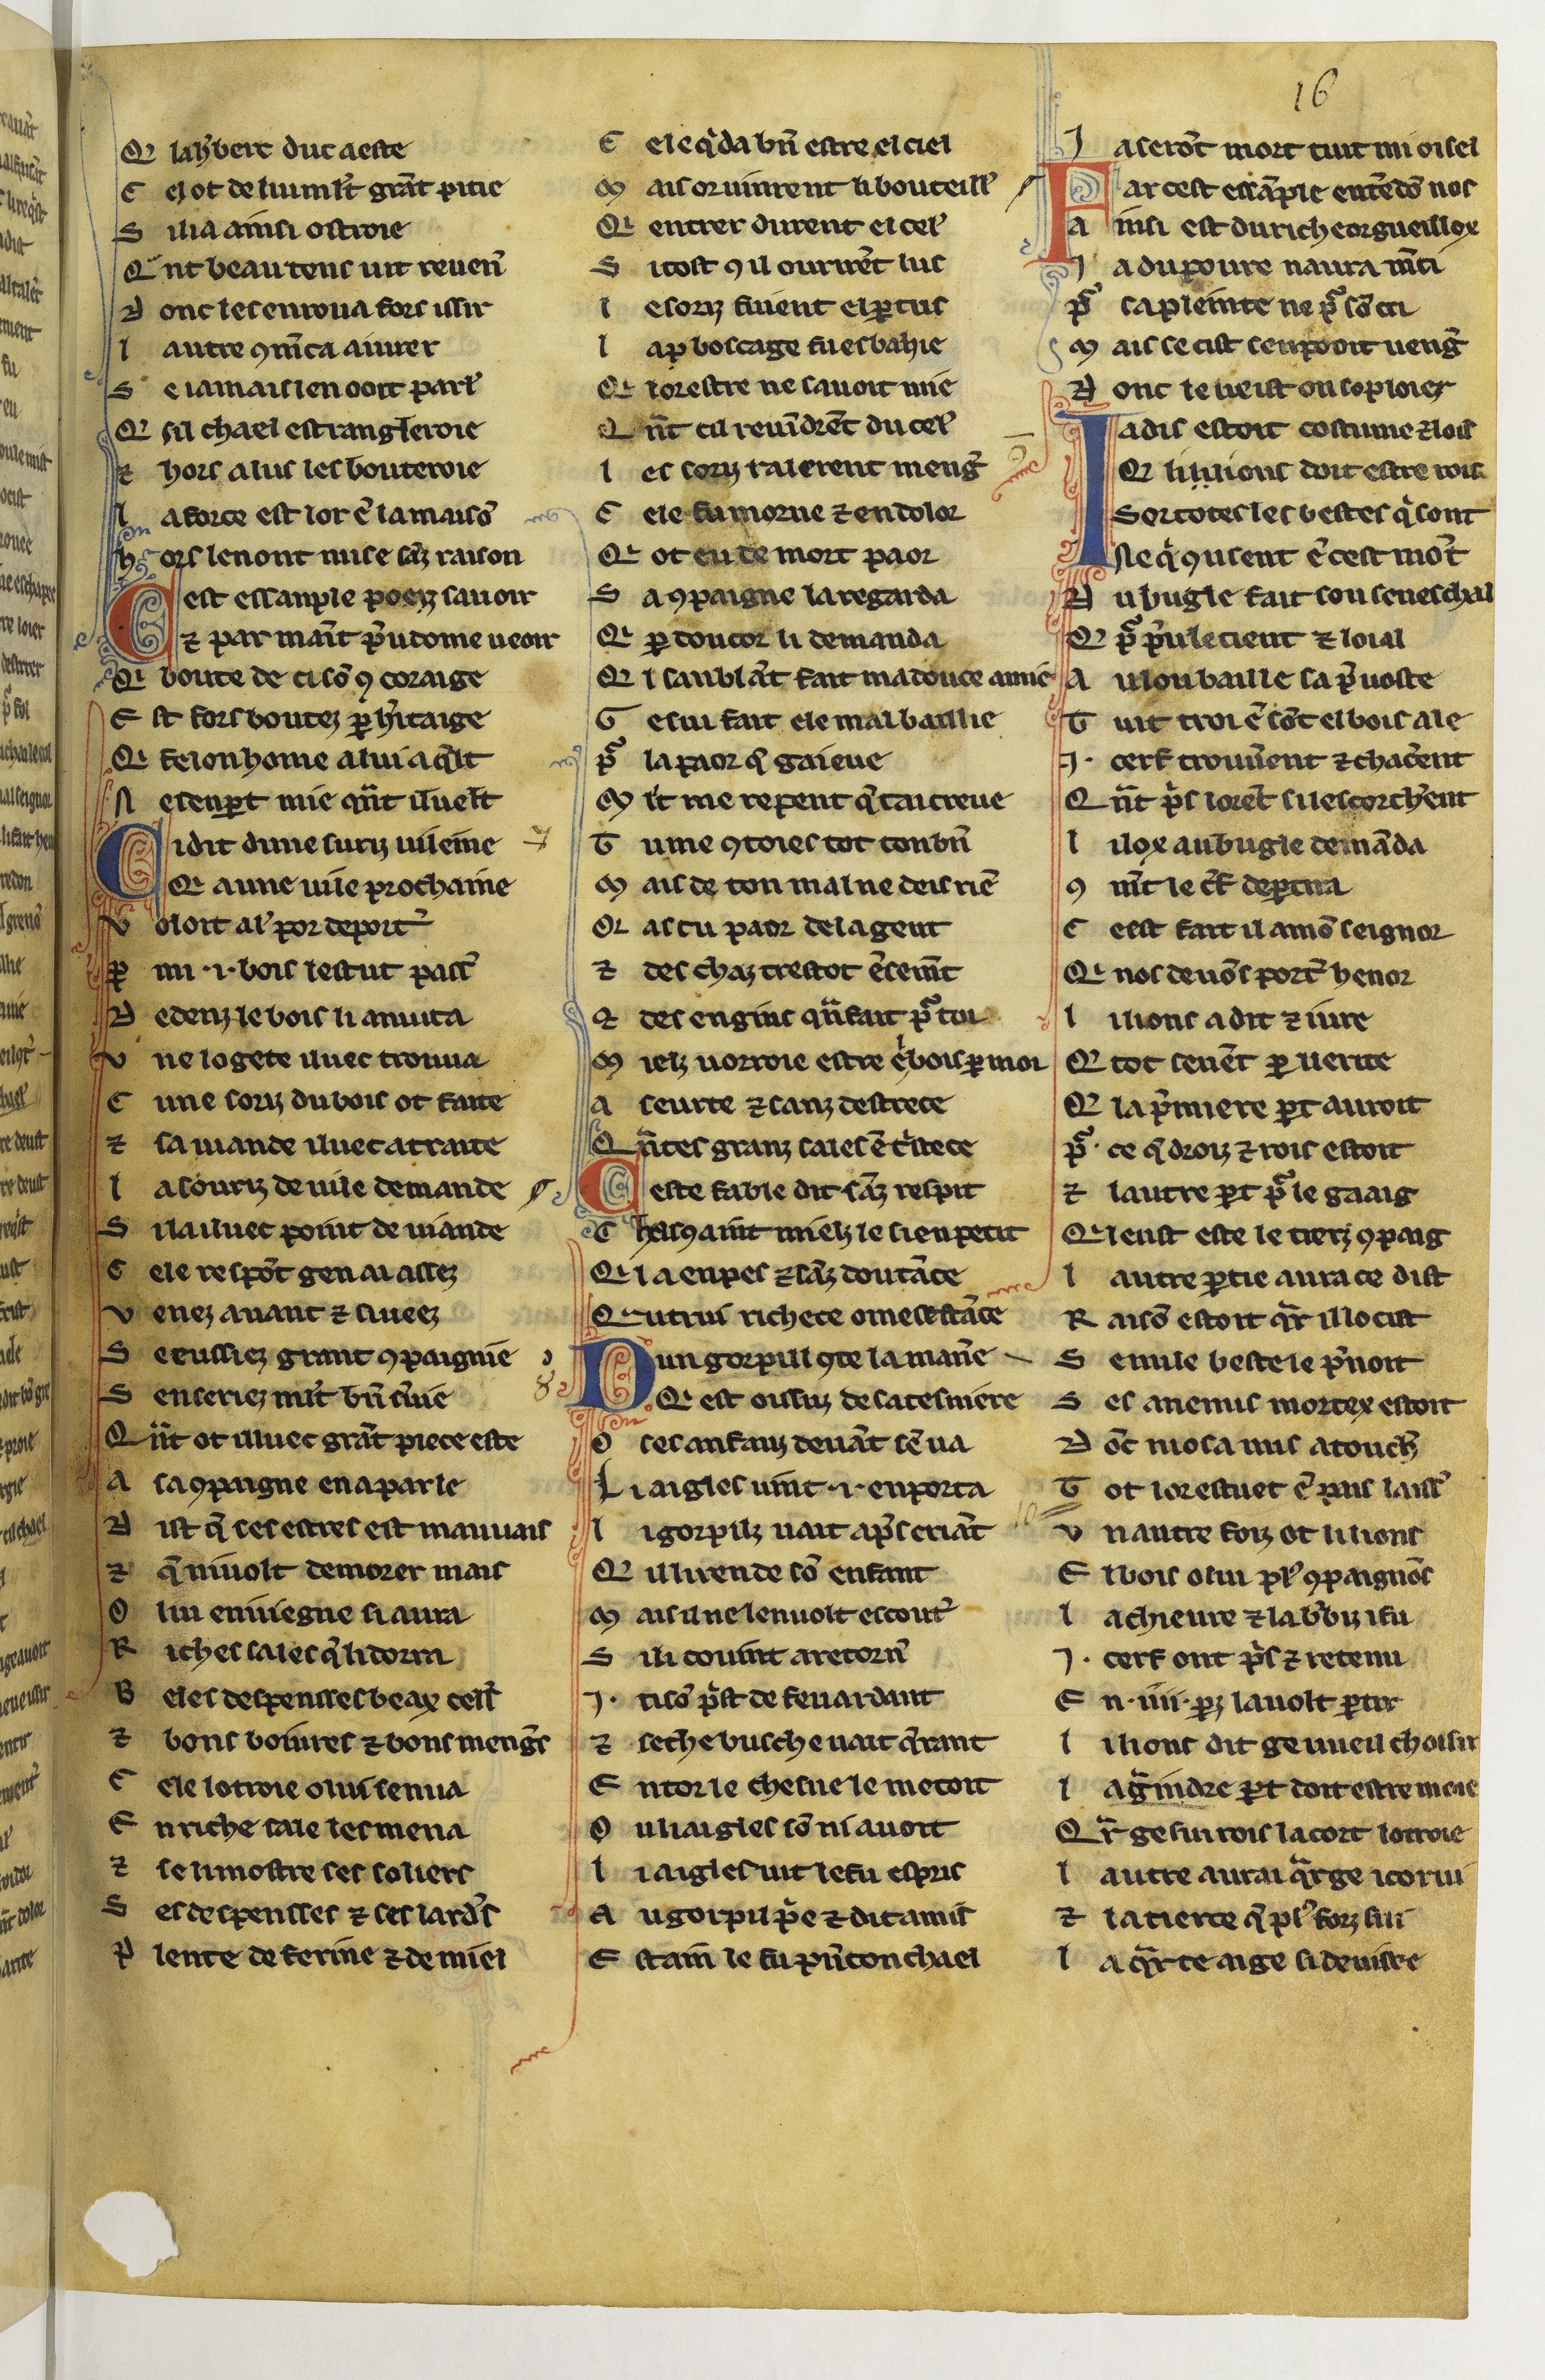 16
Q͛ la h̾berc duc a este
C el ot de lui ml't grāt pitie
S i li a ainsi ostroie
Q̄nt beau tens uit reuen͛
D onc les en roua fors issir
l autre ꝯm̄ca a iurer
S e iamais len ooit parl'
Q͛ si chael estrangleroie
⁊ hors a lus les bouteroie
l a force est lor ē la maisō
h ors lenont mise sāz raison
C est essanple poez sauoir
⁊ par maīt p̄udome ueoir
Q͛ boute de ci sō ꝯ coraige
E st fors boutez ꝑ h̾itaige
Q͛ felon home a lui aq̄lt
N e sen ꝑt mie qn̄t il uelt
C i dit dune suriz uileine
Q͛ a une uile prochaine
V oloit al' por deport͛
ꝑ mi .i. bois lestut pass͛
D edenz le bois li anuita
V ne logete iluec trouua
C une soriz du bois ot faite
⁊ sa uiande iluec atraite
l a souriz de uile demande
S il a iluec point de uiande
C ele respōt gen ai assez
V enez auant ⁊ si ueez
S e eussiez grant ꝯpaignie
S en seriez ml't bn̄ s̾uie
Qn̄t ot illuec grāt piece este
A sa ꝯpaigne en a parle
D ist q̄ ses estres est mauuais
⁊ q̄ ni uolt demorer mais
O lui en uiegne si aura
R iches sales q̄ li dorra
B eles despensses beax cell'
⁊ bons boiures ⁊ bons meng͛s
C ele lotroie o lui sen ua
E n riche sale les mena
⁊ se li mostre ses soliers
S es despensses ⁊ ses lard͛s
P lente de ferine ⁊ de miel
C ele q̄da bn̄ estre el ciel
M ais or uinrent li bouteill'
Q͛ entrer durent el cel'
S i tost ꝯ il ourirēt lus
l e soriz fuient el ꝑtus
l a ꝑ boscage fu esbahie
Q͛ lor estre ne sauoit mie
Qn̄t cil reuīdrēt du cel'
l es soriz ralerent meng͛
C ele fu morne ⁊ en dolor
Q͛ ot eu de mort paor
S a ꝯpaigne la regarda
Q͛ ꝑ doucor li demanda
Q͛l sanblāt fait ma douce amie
G e sui fait ele mal baillie
p̄ la paor q̄ gai eue
M l't me repent q̄ tai creue
T u me ꝯtoies tot ton bn̄
M ais de ton mal ne deis riē
Or as tu paor de la gent
⁊ des chaz trestot ēsemīt
⁊ des engins qn̄ fait p̄ toi
M ielz uorroie estre ē bois ꝑ moi
A seurte ⁊ sanz destrece
Qn̄ tes granz sales ē t̾stece
C este fable dit sāz respit
C hascꝯ aint mielz le sien petit
Q͛l a en pes ⁊ sāz doutāce
Q͛ utrui richece o mesestāce
D un gorpill ꝯte la man̄e
Q͛ est oissuz de sa tesniere
O ses anfanz deuāt sē ua
Li aigles uint .i. en porta
l i gorpilz uait ap̄s criāt
Q͛ il li rende sō enfant
M ais il ne len uolt escout͛
S i li couint a retorn͛
I. tisō p̄st de feu ardant
⁊ seche busche uait q̄rant
E ntor le chesne le metoit
O u li aigles sō ni auoit
l i aigles uit le fu espris
A u gorpil p̄e ⁊ dit amis
E stain le fu pn̄ ton chael
I a serōt mort tuit mi oisel
Par cest essāple entēdō nos
A insi est du riche orgueillox
I a du poure naura m̄ci
p̄ sa pleinte ne p̄ sō cri
M ais se cist sen pooit ueng͛
D onc le ueist on soploier
I adis estoit costume ⁊ lois
Q͛ li lions doit estre rois
Sor totes les bestes q̄ sont
Ne q̄ ꝯuisent ē cest mōt
D u bugle fait son seneschal
Q͛ p̄ p̄u le tient ⁊ loial
A u lou baille sa p̄uoste
T uit troi ē sōt el bois ale
I. cerf trouuent ⁊ chacent
Qn̄t p̄s lorēt si lescorch̾ent
l i lox au bugle demāda
ꝯ mīt le c̾f deꝑtira
C est fait il a mō seignor
Q͛ nos deuōs port͛ henor
l i lions a dit ⁊ iure
Q͛ tot seuēt ꝑ uerite
Q͛ la p̄miere ꝑt auroit
p̄ ce q̄ droiz ⁊ rois estoit
⁊ lautre ꝑt p̄ le gaaig
Q͛l eust este le tierz ꝯpaig
l autre ꝑtie aura ce dist
R aisō estoit q̄r il locist
S e nule beste le p̄noit
S es anemis mortex estoit
D ōc ni osa nus atouch͛
T ot lor estuet ē pais laiss͛
V n autre foiz ot li lions
E l bois o lui pl' ꝯpaignōs
l a chieure ⁊ la b̾biz i fu
I. cerf ont p̄s ⁊ retenu
E n .iiii. ꝑz lauolt ꝑtir
l i lions dit ge uueil choisir
l a ḡindre ꝑt doit estre moie
Q̄r ge sui rois la cort lotroie
l autre aurai q̄r ge i corui
⁊ la tierce q̄ pl' forz sui
l a q̄rte ai ge si deuisee